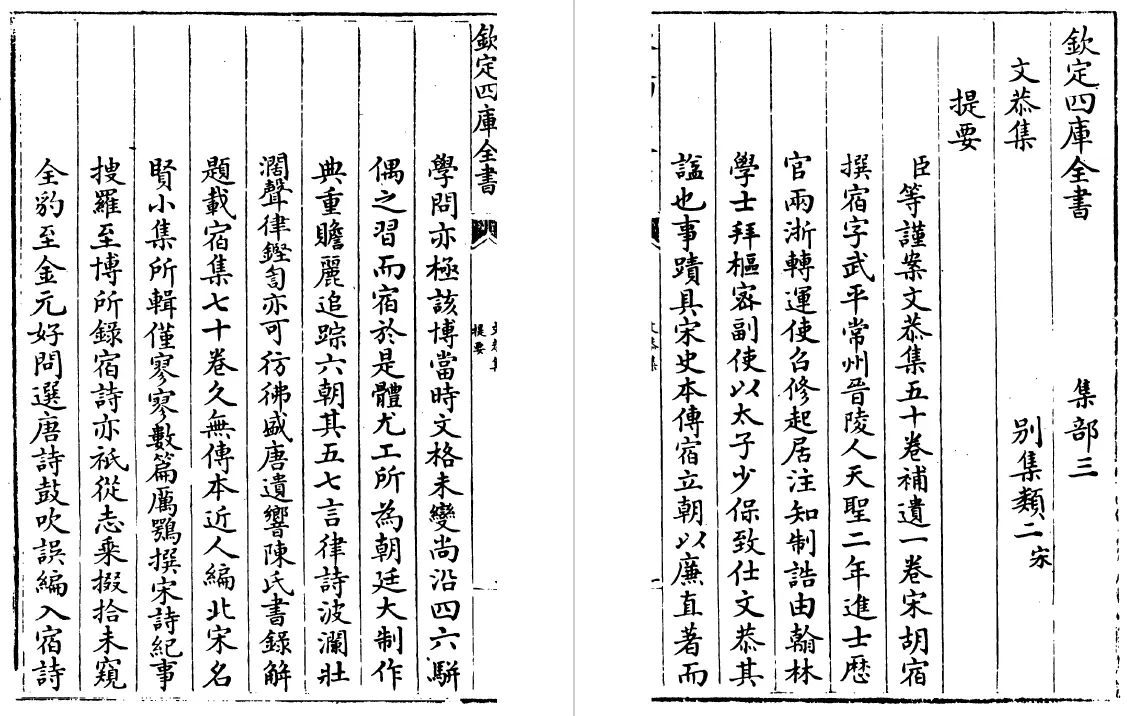 欽定四庫全書 集部三
文恭集 別集類二宋
提要
臣等謹案文恭集五十卷補遺一卷宋胡宿
撰宿字武平常州晉陵人天聖二年進士歷
官兩浙轉運使召修起居注知制誥由翰林
學士拜樞密副使以太子少保致仕文恭其
謚也事蹟具宋史本傳宿立朝以廉直著而
欽定四庫全書
文恭集
提要
學問亦極該博當時文格未變尚沿四六駢
偶之習而宿於是體尤工所為朝廷大制作
典重贍麗追踪六朝其五七言律詩波瀾壯
濶聲律鏗訇亦可彷彿盛唐遺響陳氏書錄解
題載宿集七十卷久無傳本近人編北宋名
賢小集所輯僅寥寥數篇厲鶚撰宋詩紀事
搜羅至博所錄宿詩亦祇從志乘掇拾未窺
全豹至金元好問選唐詩鼓吹誤編入宿詩